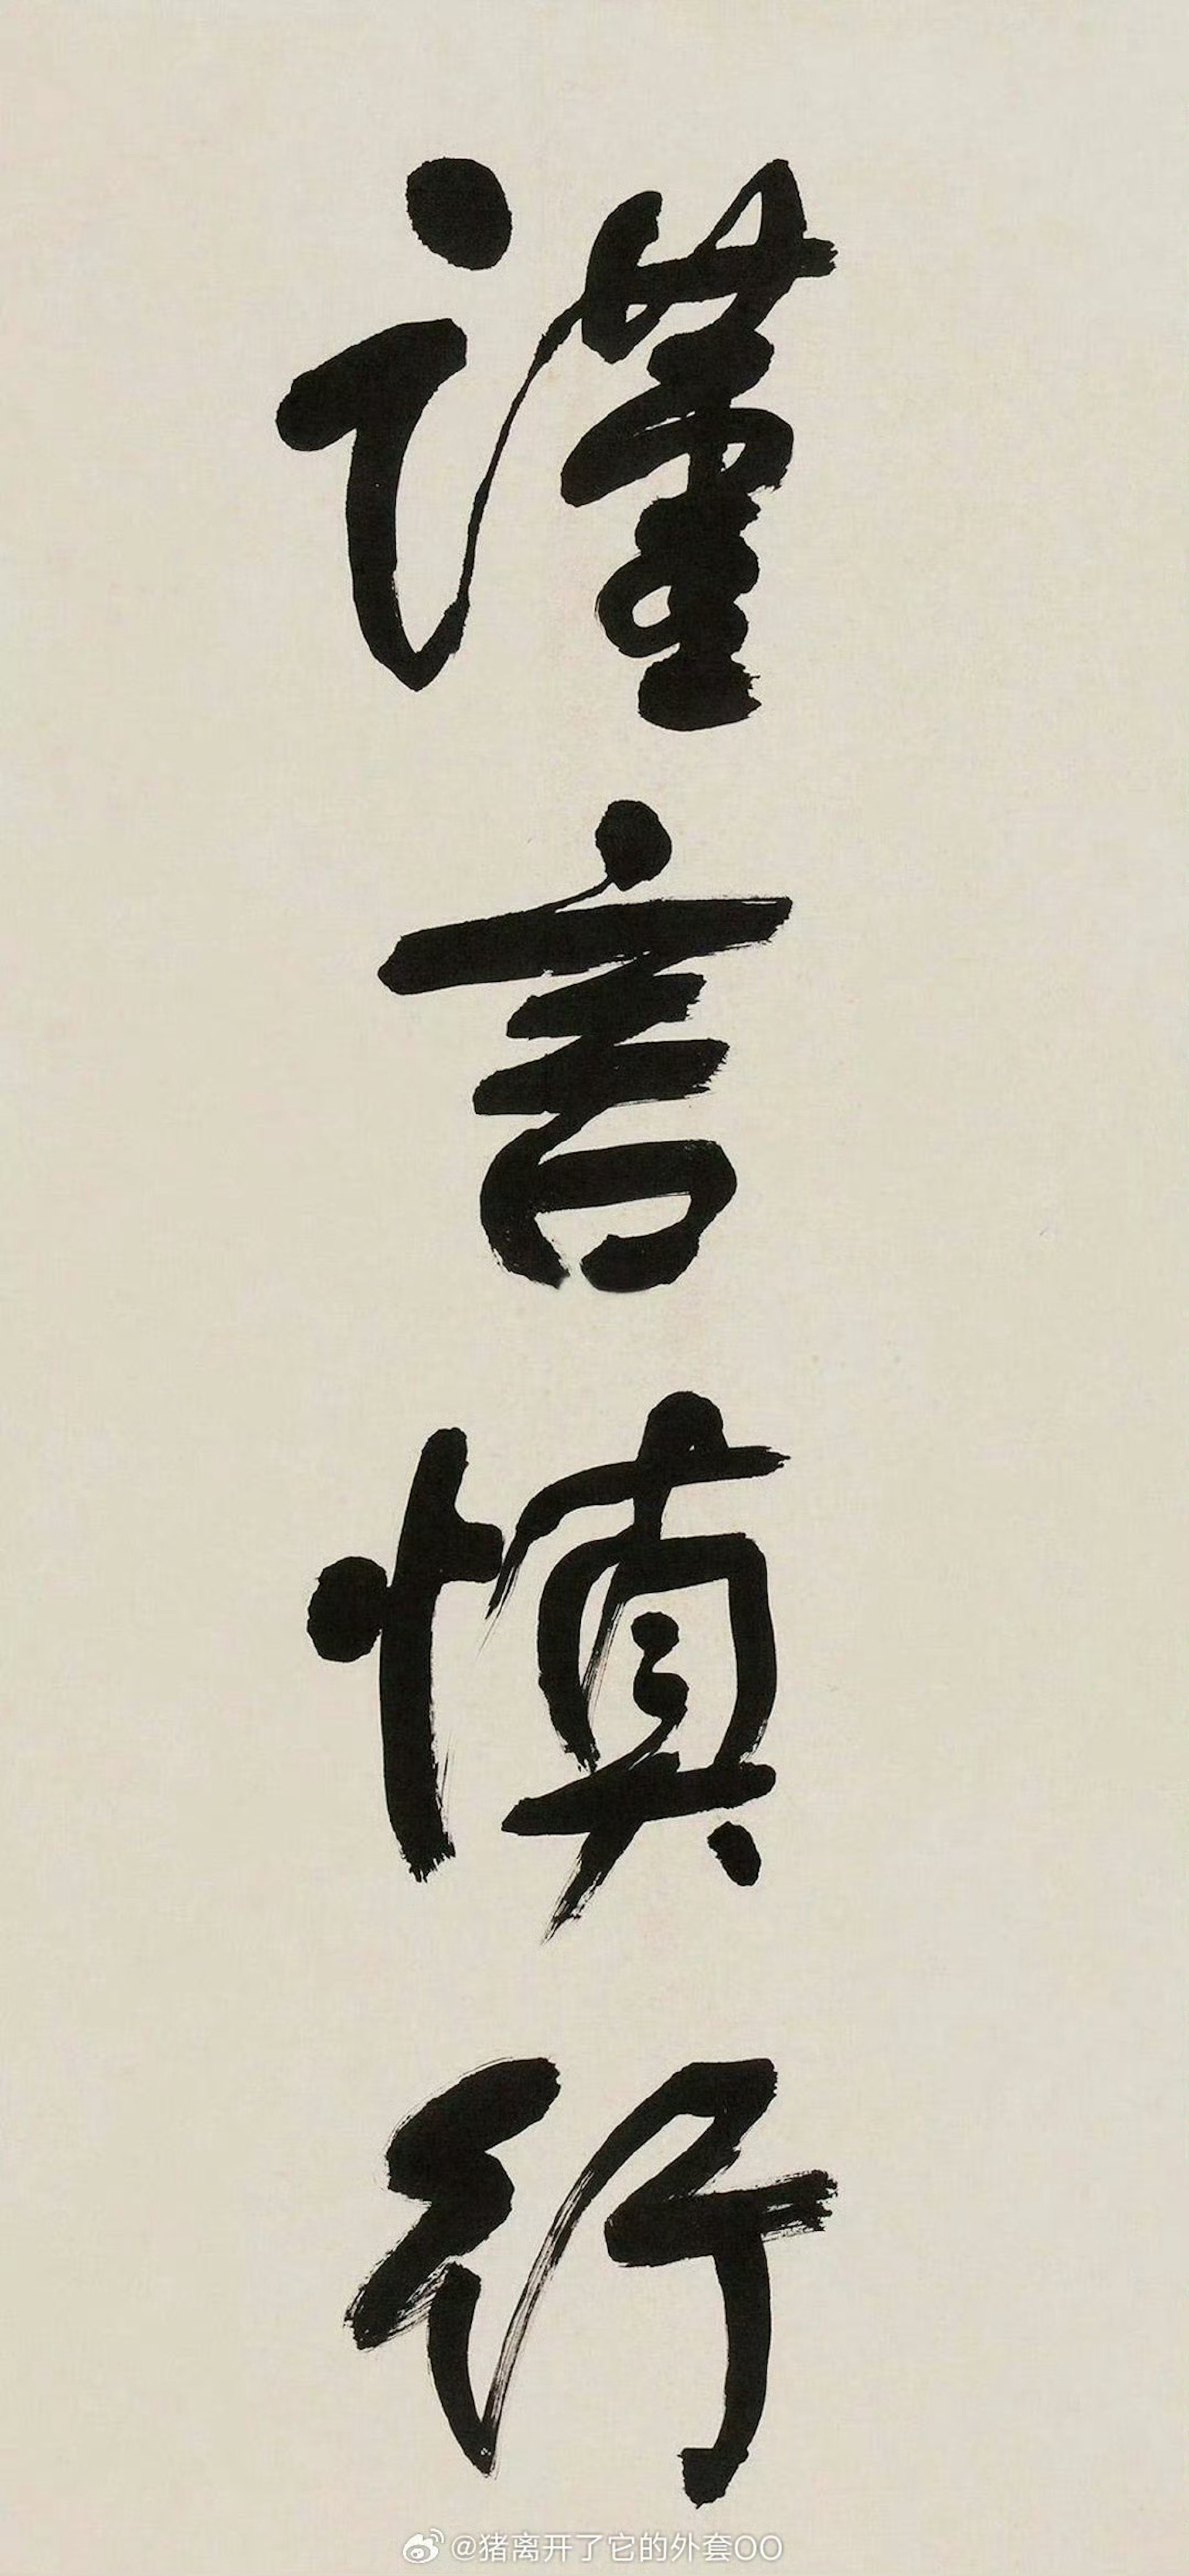 謹言慎行
@猪离开了它的外套OO